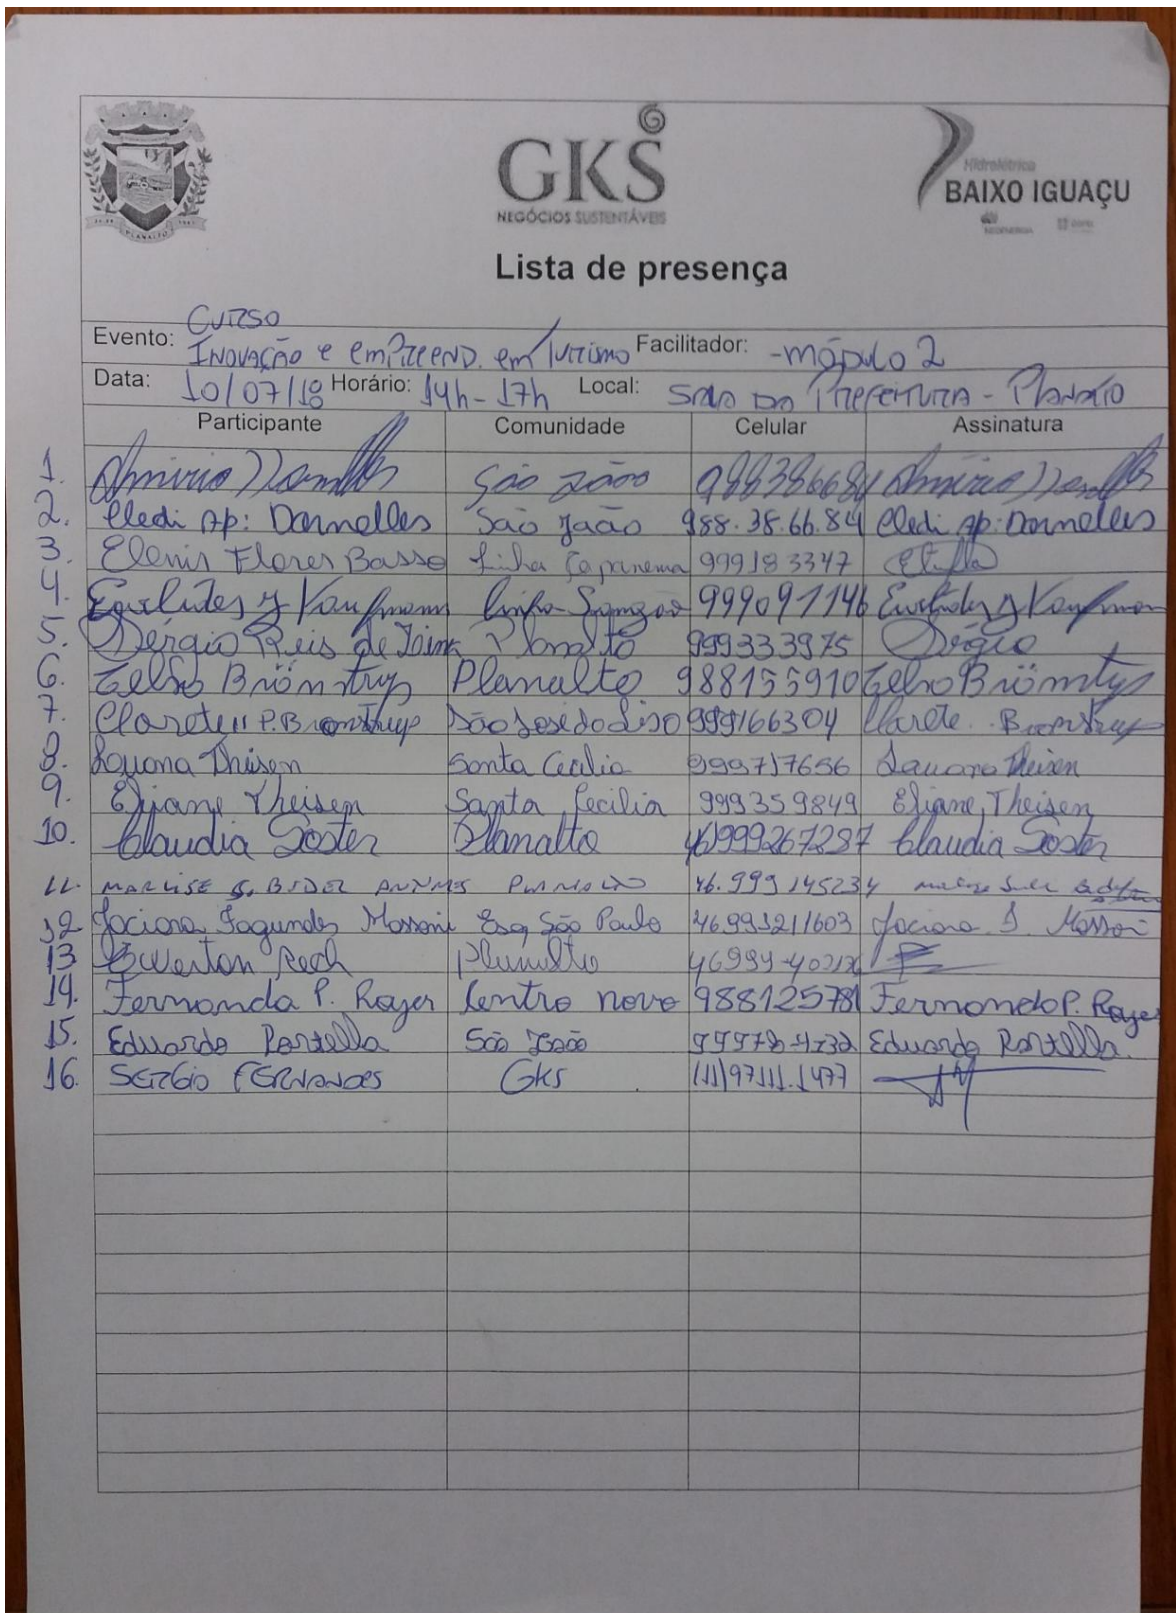 PLANALTO
GKS
NEGÓCIOS SUSTENTÁVEIS
Hidrelétrica
BAIXO IGUAÇU
Lista de presença
Evento: Curso
Inovação e Empreend. em Turismo Facilitador: - módulo 2
Data: 10/07/18 Horário: 14h - 17h Local: Sala da Prefeitura - Planalto
Participante Comunidade Celular Assinatura
1. São João 988386684
2. Cledi Ap: Dornelles São João 988.38.66.84 Cledi Ap: Dornelles
3. Elenir Flores Basso Linha Capanema 999183347
4. Euclides J Kaufmann Linha 999091146 Euclides J Kaufmann
5. Sérgio Reis de Planalto 999333975 Sérgio
6. Celso Brönstrup Planalto 988155910 Celso Brönstrup
7. Clarete P. Bronstrup São José do Liso 999166304 Clarete Bronstrup
8. Louana Theisen Santa Cecilia 999717656 Louana Theisen
9. Eliane Theisen Santa Cecilia 999359849 Eliane Theisen
10. Claudia Soster Planalto 46)999267287 Claudia Soster
11. MARLISE S. Planalto 46.999145234
12 Jociana Fagundes Mossoni Esq São Paulo 46999211603 Jociana F. Mossoni
13 Everton Rech Planalto
14. Fernanda P. Royer Centro novo 988125781 Fernanda P. Royer
15. Eduardo Portella São João Eduardo Portella.
16. SERGIO FERNANDES GKS (11)97111.1477